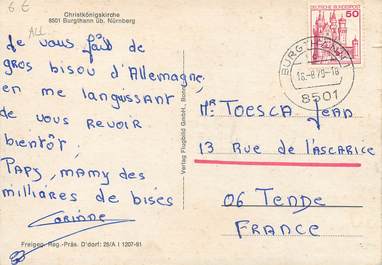 6 €
ALL
Christkönigskirche
8501 Burgthann üb. Nürnberg
Je vous fait de
gros bisou d'Allemagne
en me languissant
de vous revoir
bientôt,
Papy, mamy des
milliares de bises
Corinne
Freigeg. Reg.-Präs. D'dorf: 28/A I 1207-81
Verlag Flugbild GmbH, Bonn
DEUTSCHE BUNDESPOST
50
BURGTHANN
16.-8.79.-16
8501
Mr TOESCA Jean
13 RUE de l'ASCARICE
06 TENDE
FRANCE